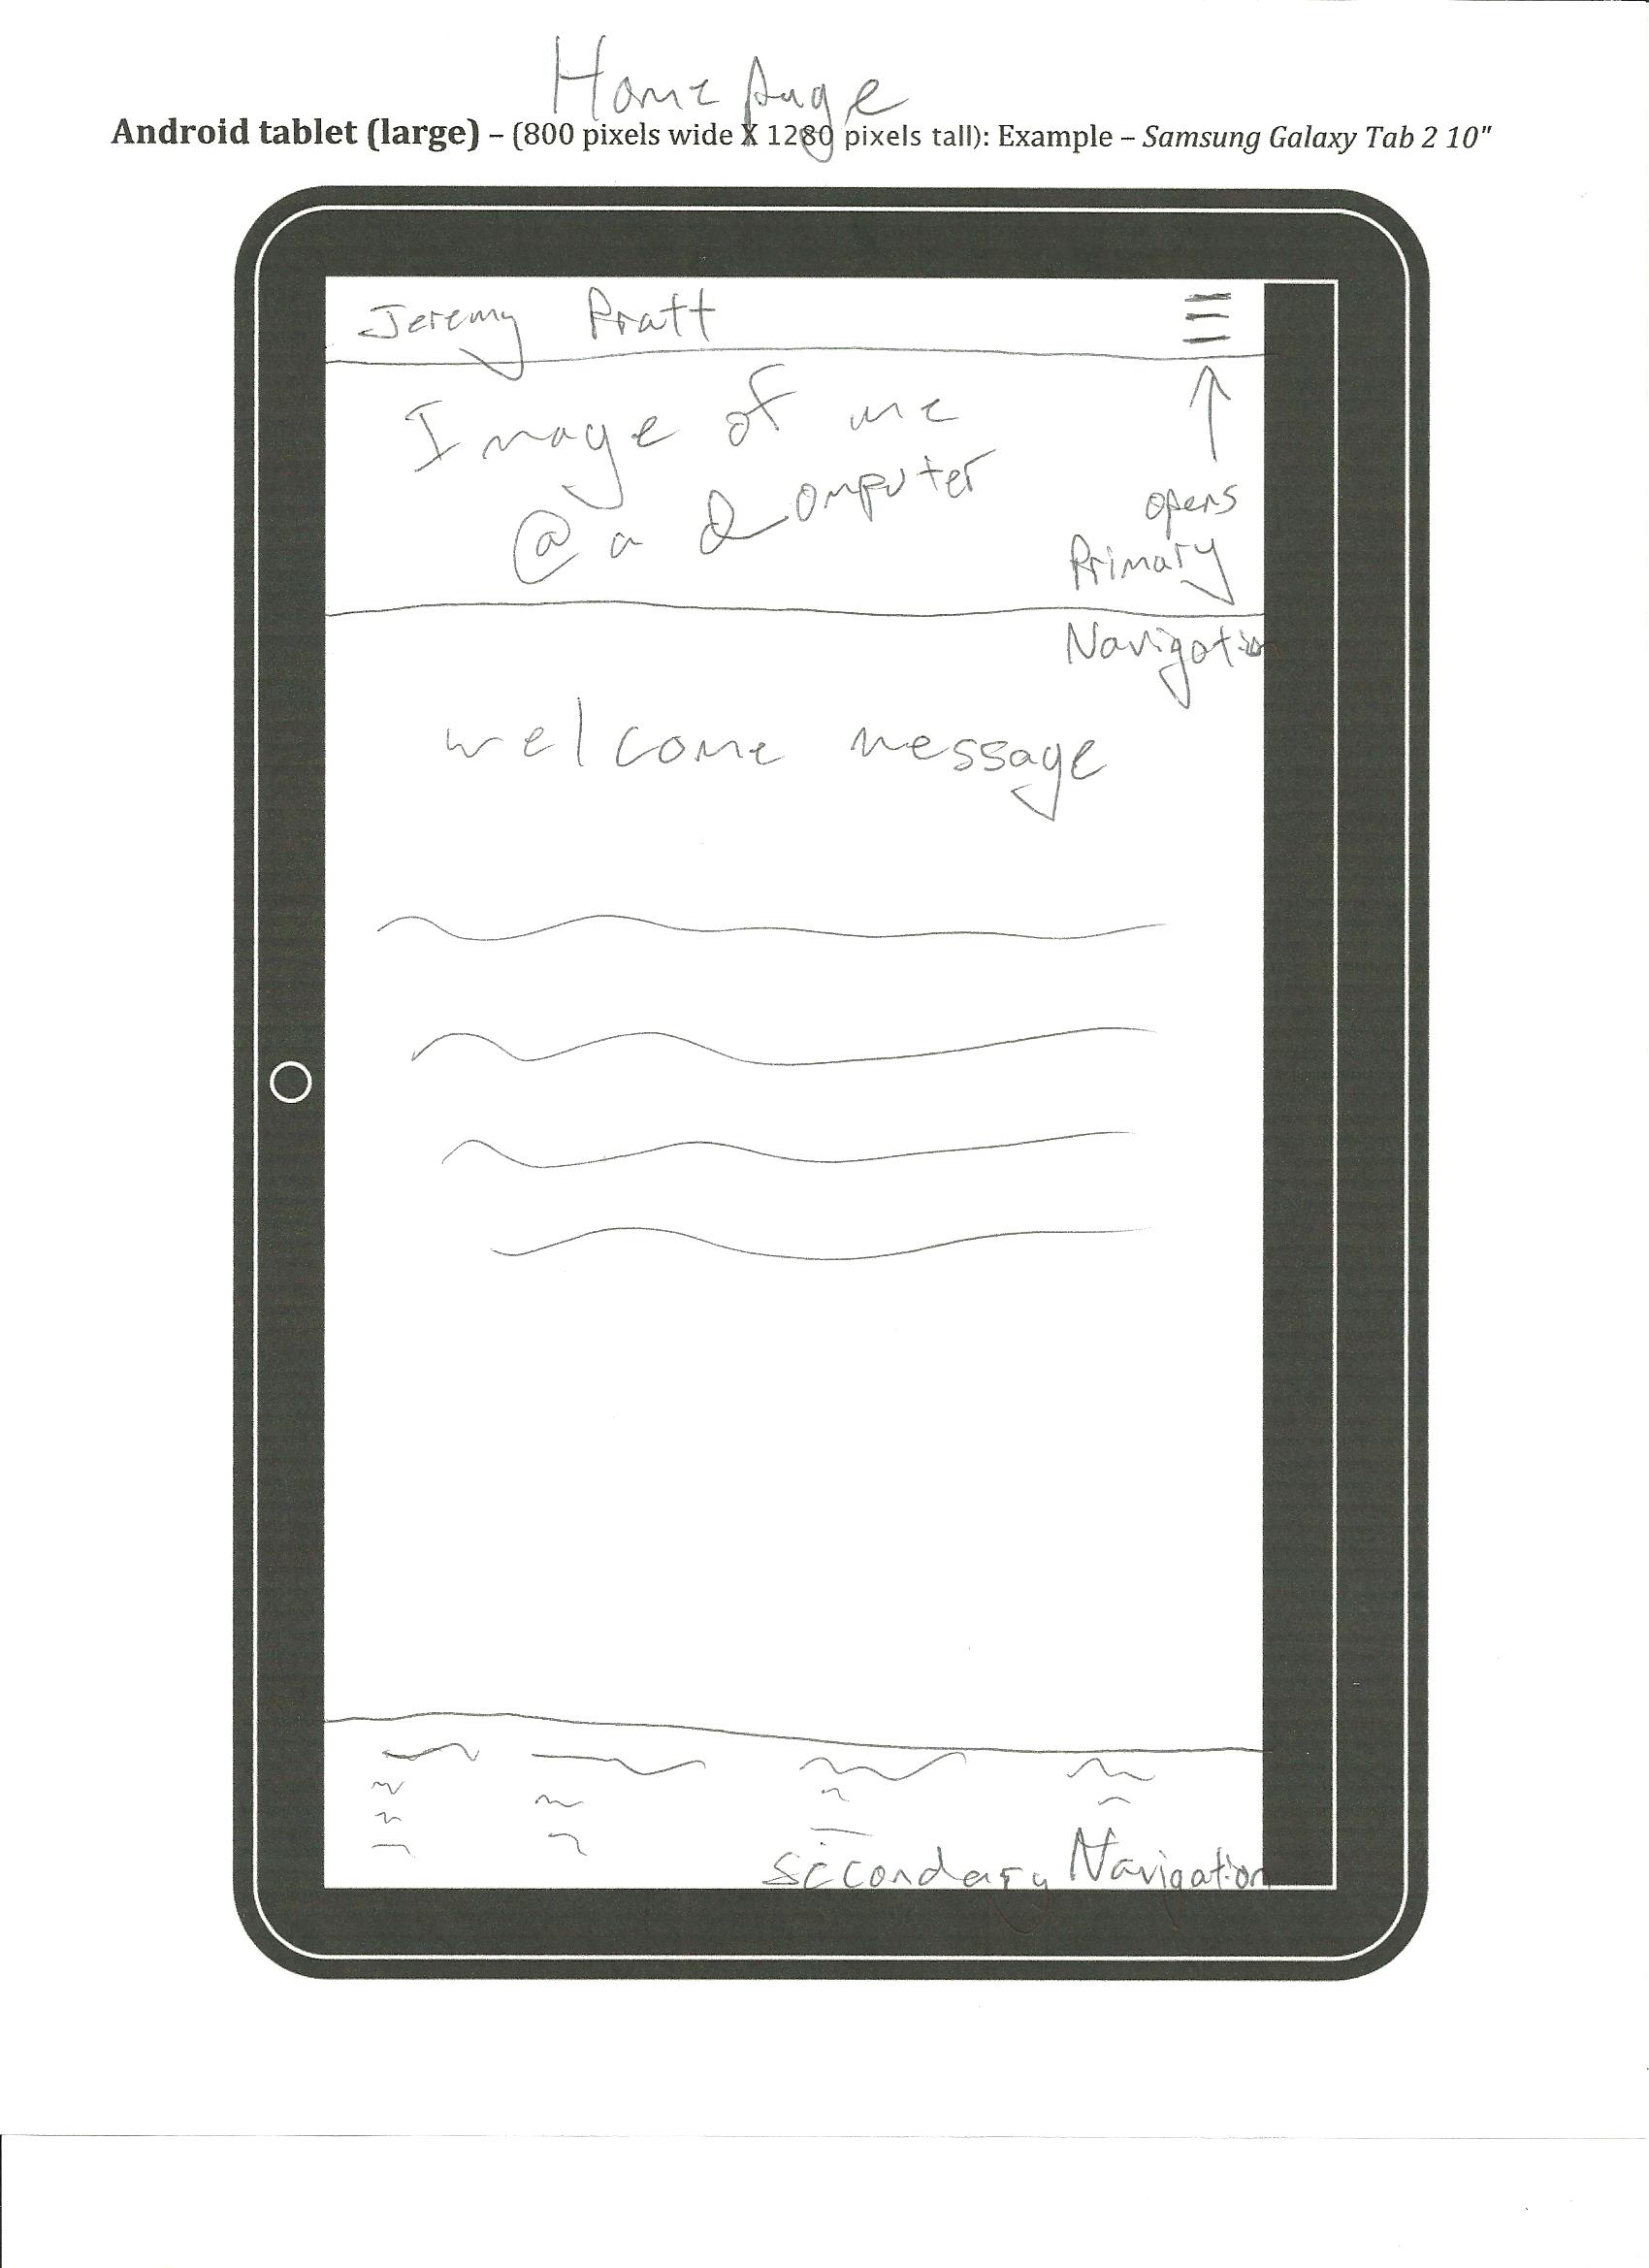 Home page
Android tablet (large) – (800 pixels wide X 1280 pixels tall): Example – Samsung Galaxy Tab 2 10"
Jeremy Pratt
Image of me
@ a Computer
opens
Primary
Navigation
welcome message
secondary Navigation